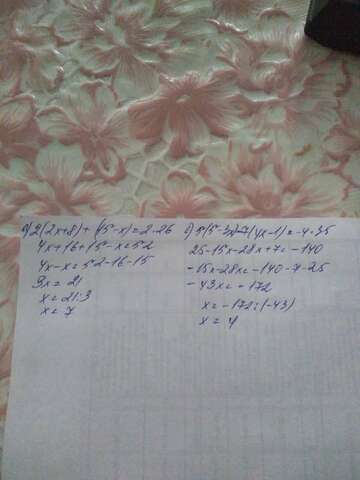 а) 2(2x+8)+(15-x)=2·26
4x+16+15-x=52
4x-x=52-16-15
3x=21
x=21:3
x=7
б) 5(5-3x)-7(4x-1)=-4·35
25-15x-28x+7=-140
-15x-28x=-140-7-25
-43x=-172
x=-172:(-43)
x=4